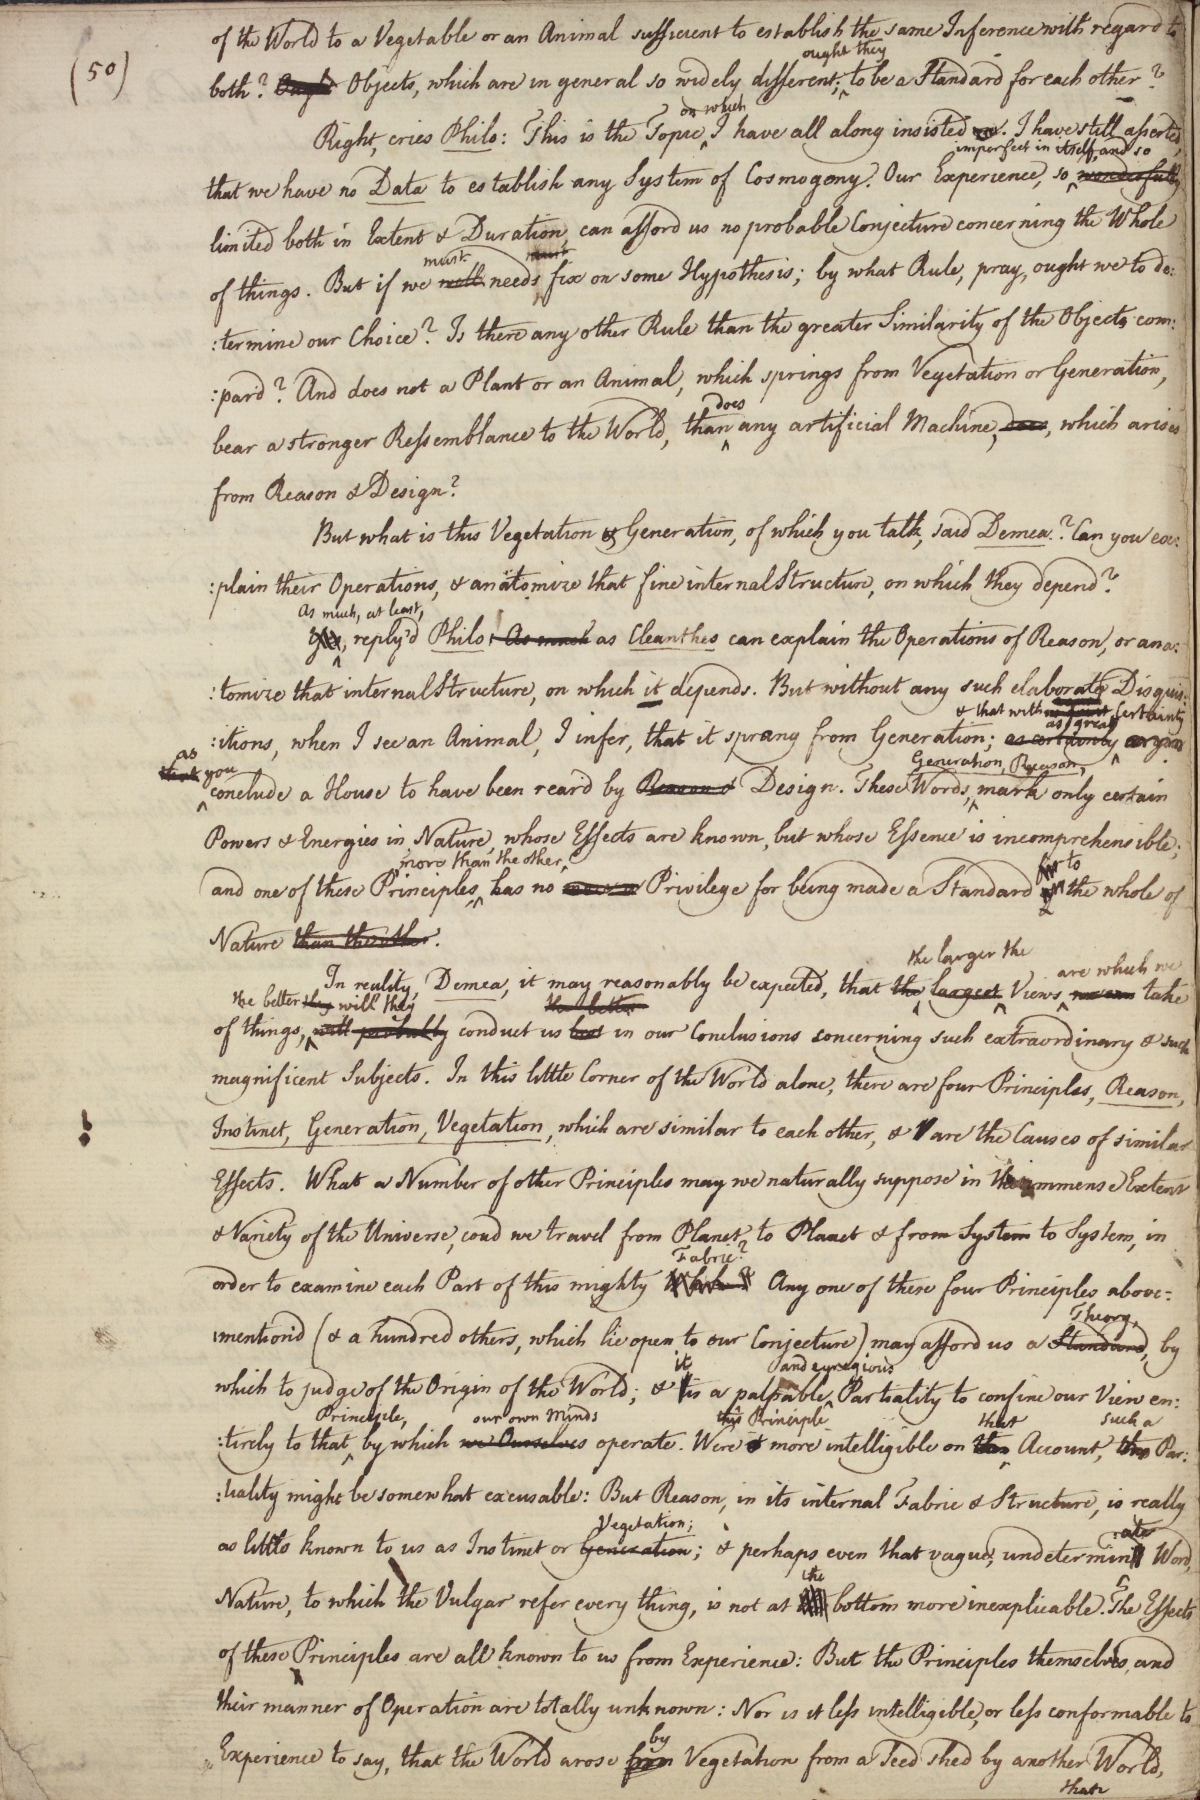 (50)
of the World to a Vegetable or an Animal sufficient to establish the same Inference with regard to
ought they
both? Ought Objects, which are in general so widely different; to be a Standard for each other?
on which
Right, cries Philo: This is the Topic, I have all along insisted on. I have still asserted,
imperfect in itself, and so
that we have no Data to establish any System of Cosmogony. Our Experience, so wonderfully
limited both in Extent & Duration, can afford us no probable Conjecture concerning the Whole
must must
of things. But if we will needs fix on some Hypothesis; by what Rule, pray, ought we to de:
:termine our Choice? Is there any other Rule than the greater Similarity of the Objects com:
:par'd? And does not a Plant or an Animal, which springs from Vegetation or Generation,
does
bear a stronger Ressemblance to the World, than any artificial Machine, does, which arises
from Reason & Design?
But what is this Vegetation & Generation, of which you talk, said Demea? Can you ex:
:plain their Operations, & anatomize that fine internal Structure, on which they depend?
As much, at least,
Yes, reply'd Philo As much as Cleanthes can explain the Operations of Reason, or ana:
:tomize that internal Structure, on which it depends. But without any such elaborate Disquis:
& that with as great Certainty
:itions, when I see an Animal, I infer, that it sprang from Generation; as certainly as you
as
that you
conclude a House to have been rear'd by Reason & Design. These Words, mark only certain
Generation, Reason,
Powers & Energies in Nature, whose Effects are known, but whose Essence is incomprehensible;
more than the other,
and one of these Principles, has no Privilege for being made a Standard to the whole of
Nature than the other.
the larger the are which we
In reality, Demea, it may reasonably be expected, that the largest Views take
the better they will they the better
of things, will probably conduct us best in our Conclusions concerning such extraordinary & such
magnificent Subjects. In this little Corner of the World alone, there are four Principles, Reason,
Instinct, Generation, Vegetation, which are similar to each other, & are the Causes of similar
Effects. What a Number of other Principles may we naturally suppose in the immense Extent
& Variety of the Universe, coud we travel from Planet to Planet & from System to System, in
Fabric?
order to examine each Part of this mighty Any one of these four Principles above:
Theory,
:mention'd (& a hundred others, which lie open to our Conjecture) may afford us a Standard, by
it and egregious
which to judge of the Origin of the World; & tis a palpable Partiality to confine our View en:
Principle, our own Minds this Principle that such a
:tirely to that by which we Ourselves operate. Were it more intelligible on this Account, this Par:
:tiality might be somewhat excusable: But Reason, in its internal Fabric & Structure, is really
Vegetation;
as little known to us as Instinct or Generation; & perhaps even that vague, undeterminate Word,
the
Nature, to which the Vulgar refer every thing, is not at bottom more inexplicable. The Effects
of these Principles are all known to us from Experience: But the Principles themselves, and
their manner of Operation are totally unknown: Nor is it less intelligible, or less conformable to
by
Experience to say, that the World arose from Vegetation from a Seed shed by another World,
than